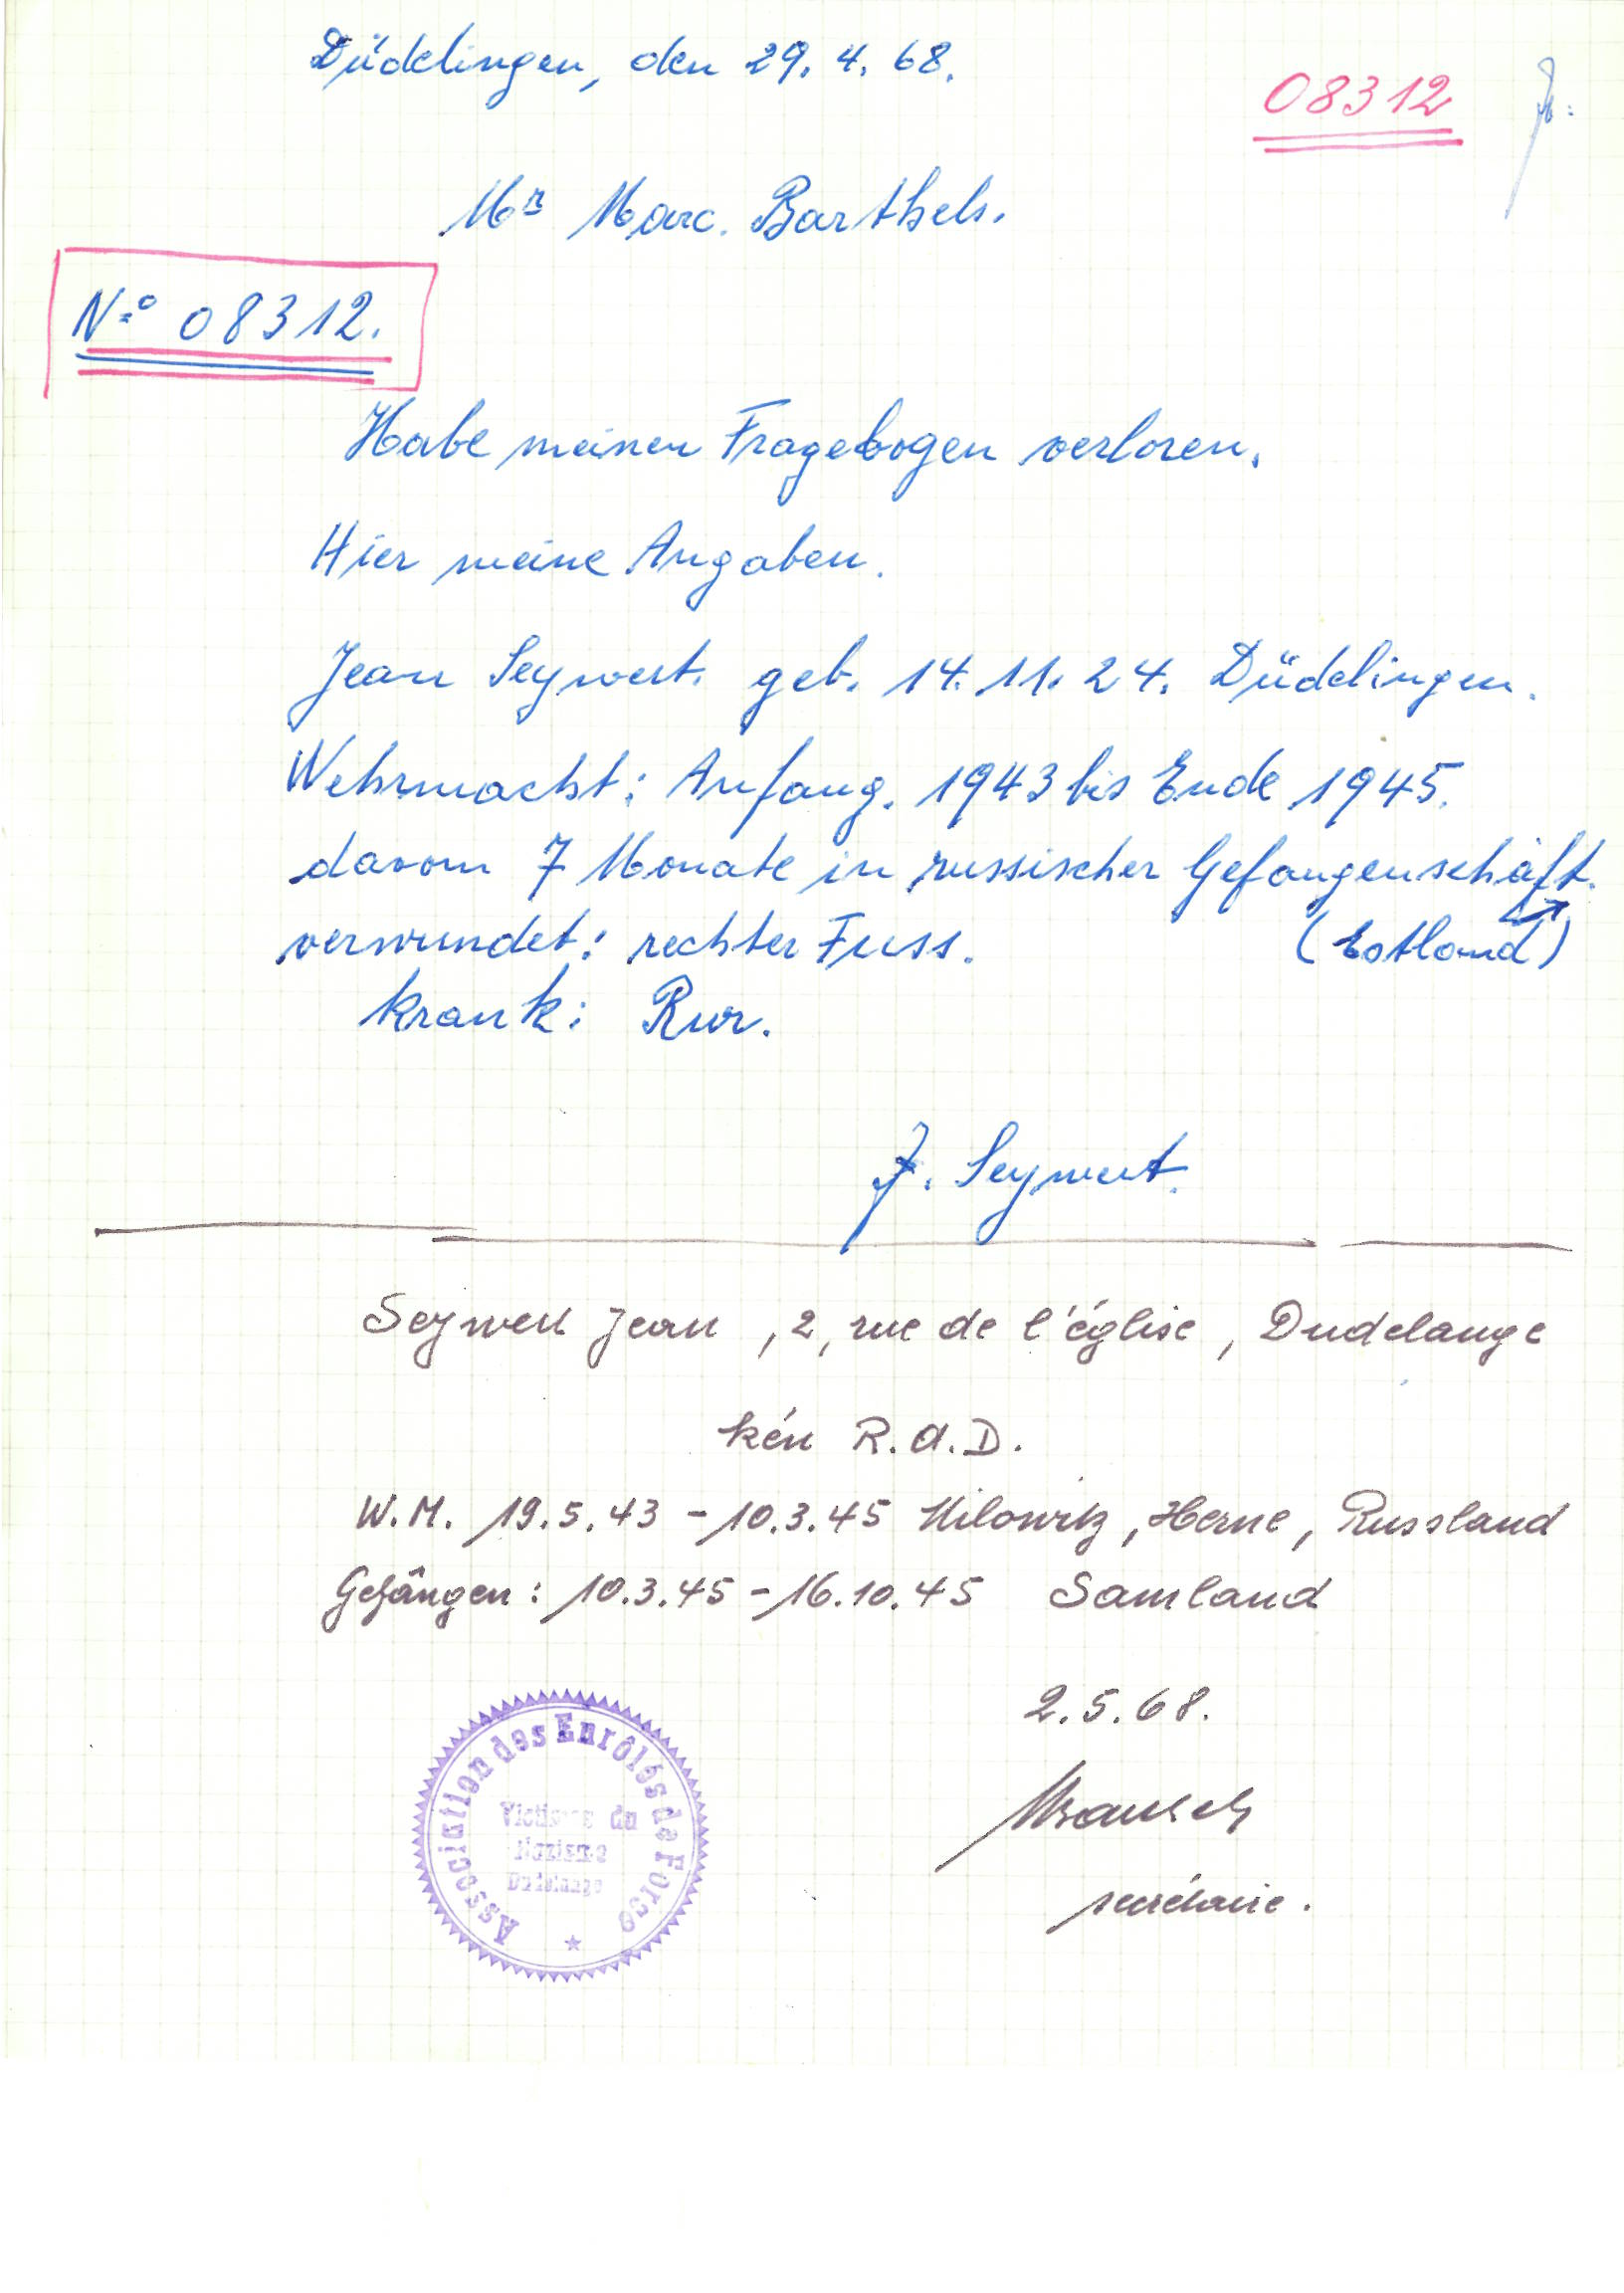 Düdelingen, den 29. 4. 68.
08312
Mr Marc. Barthels.
No 08312.
Habe meinen Fragebogen verloren.
Hier meine Angaben.
Jean Seywert. geb. 14. 11. 24. Düdelingen.
Wehrmacht: Anfang. 1943 bis Ende 1945.
davom 7 Monate in russischer Gefangenschaft.
verwundet: rechter Fuss. (Estland)
krank: Rur.
J. Seywert.
Seywert Jean, 2, rue de l'église, Dudelange
kén R.A.D.
W.M. 19.5.43 - 10.3.45 Milowitz, Herne, Russland
Gefangen: 10.3.45 - 16.10.45 Samland
2.5.68.
secrétaire.
Association des Enrôlés de Force
Victimes du
Nazisme
Dudelange